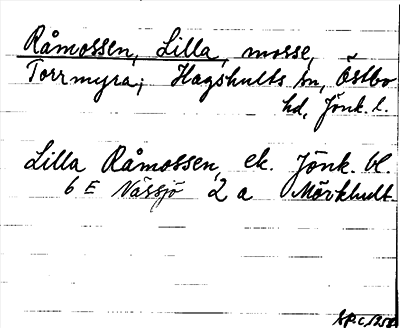 Råmossen, Lilla, mosse,
Torrmyra; Hagshults sn, Östbo
hd, Jönk. l.
Lilla Råmossen, ek. Jönk. bl.
6 E Nässjö 2 a Mörkhult.